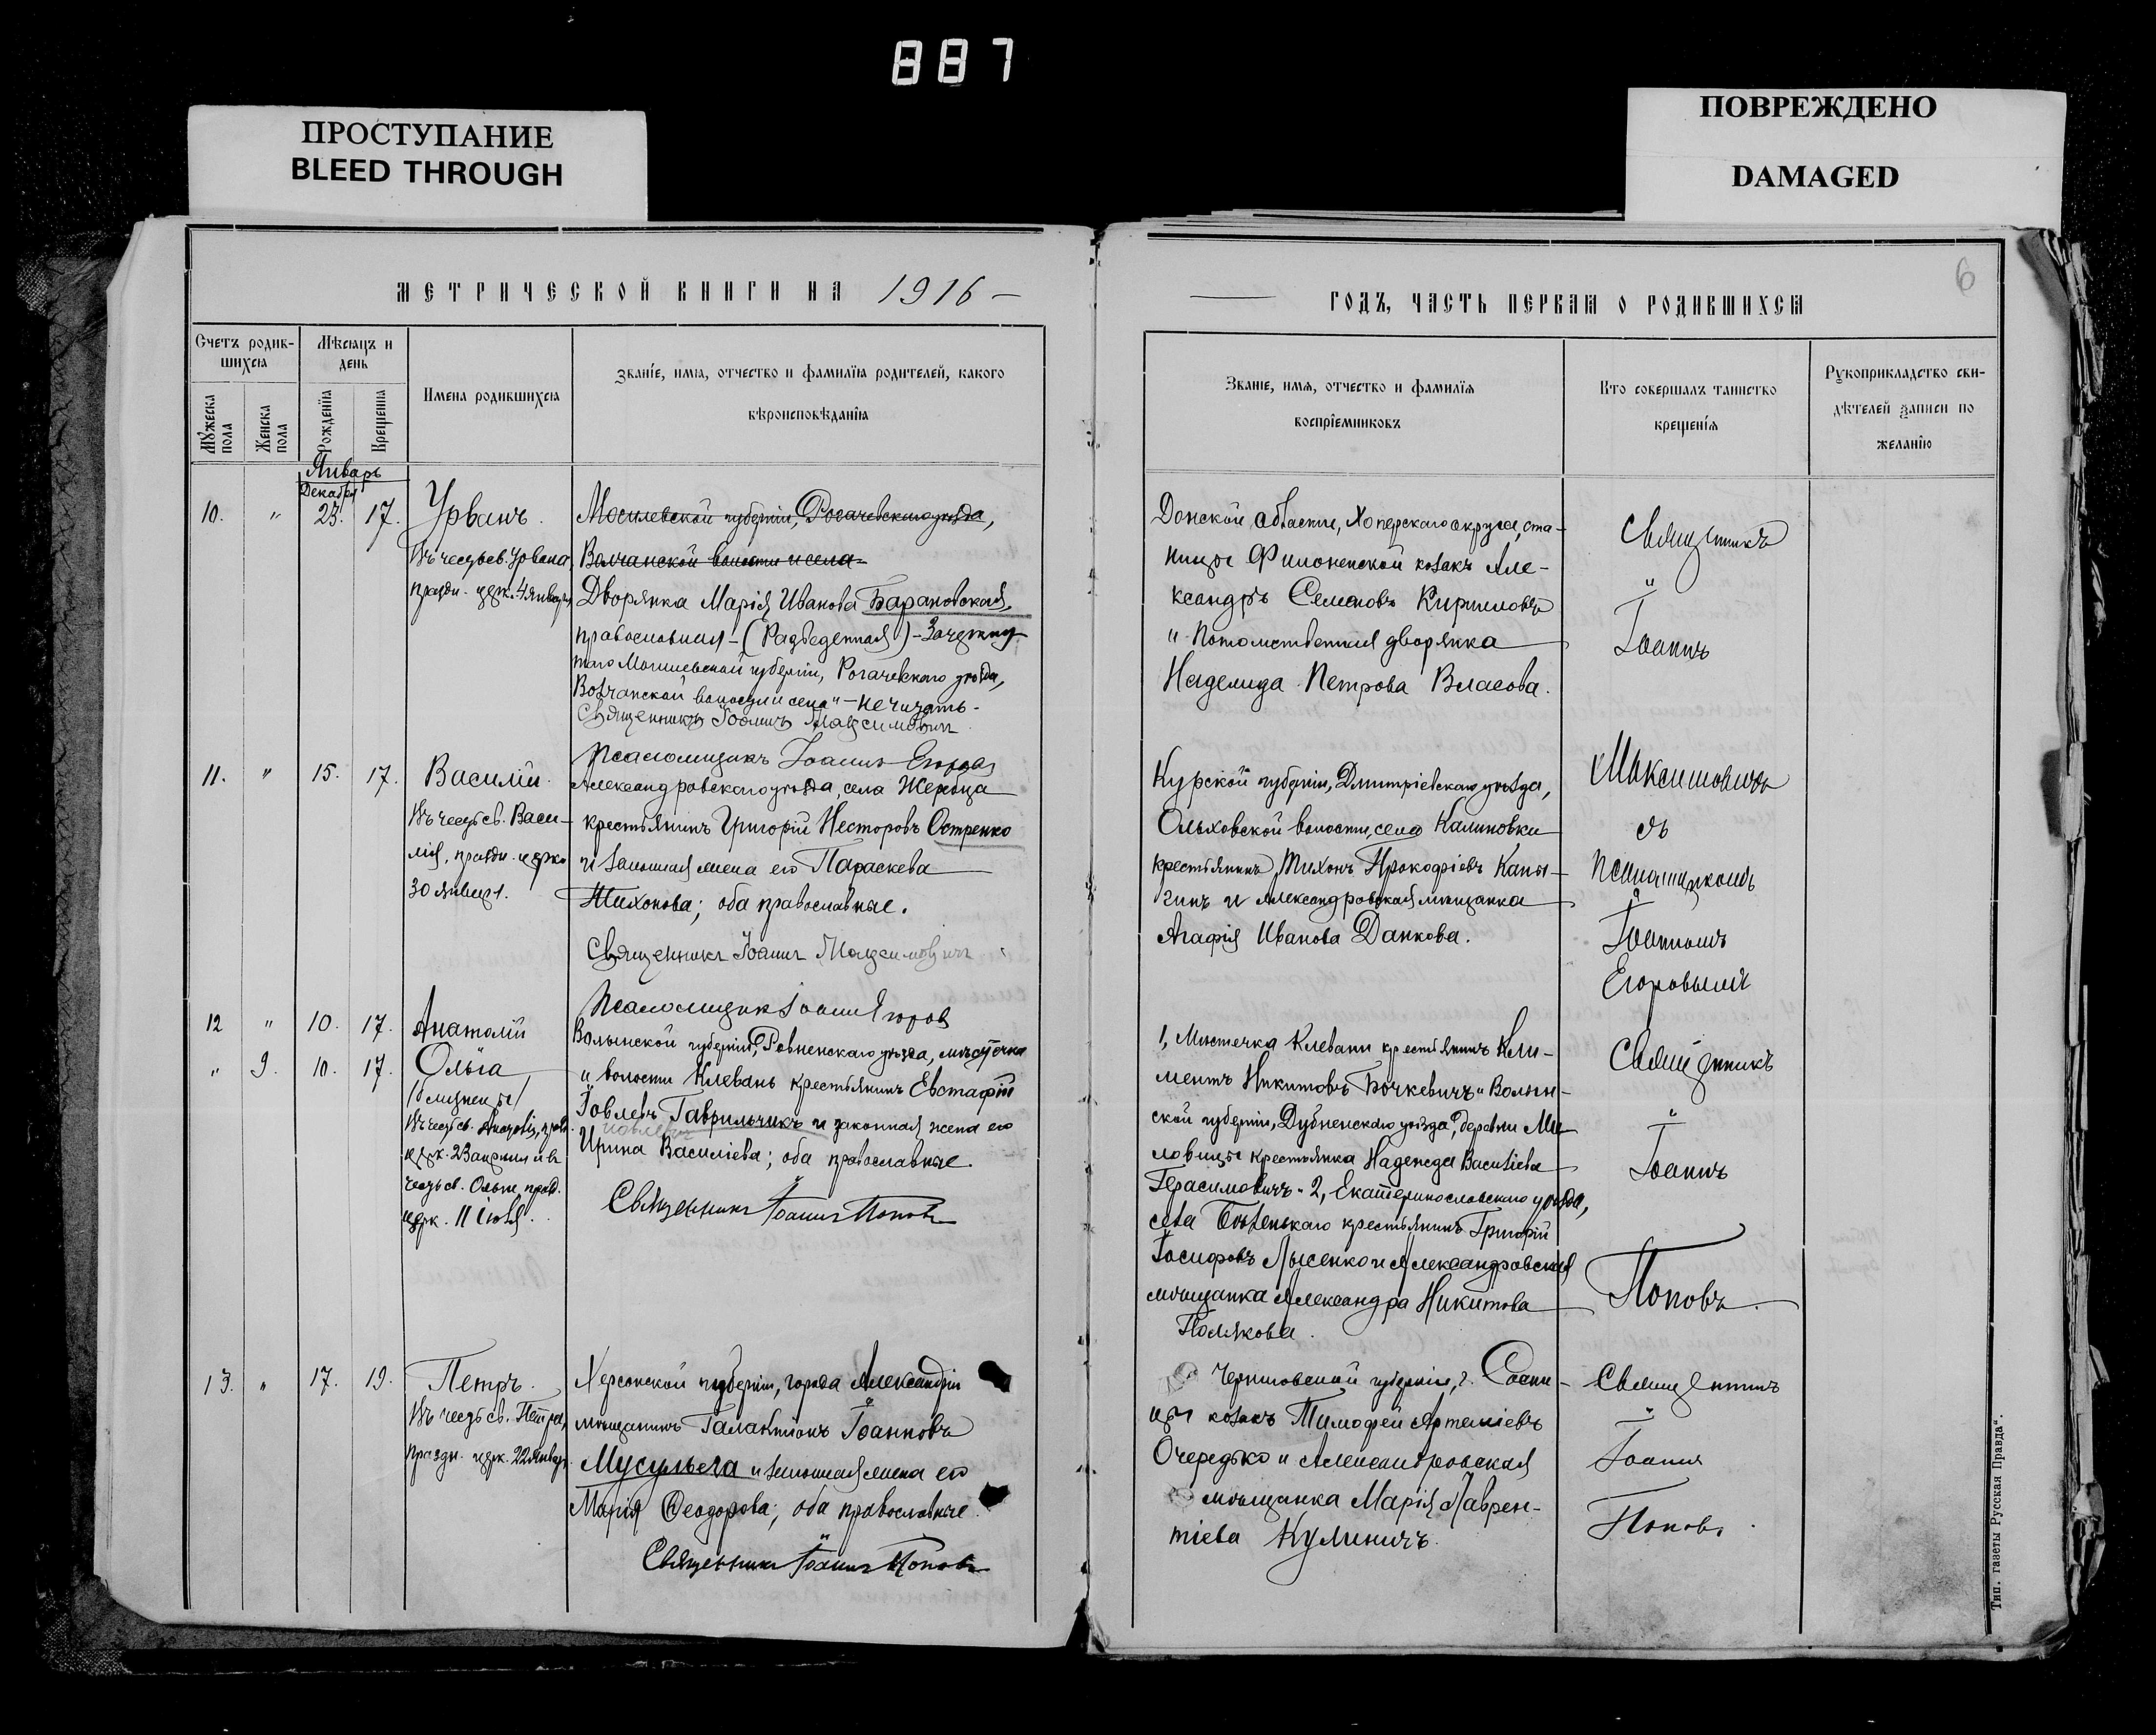 887
ПРОСТУПАНИЕ
BLEED THROUGH
ПОВРЕЖДЕНО
DAMAGED
МЕТРИЧЕСКОЙ КНИГИ НА 1916 –
Счетъ родив-
шихся
Мѣсяцъ и
день
Мужеска
пола
Женска
пола
Рожденія
Крещенія
Имена родившихся
Званіе, имя, отчество и фамилія родителей, какого
вѣроисповѣданія
Январь
Декабря
10. " 23. 17. Урванъ.
Въ честь св. Урвана,
праздн. церк. 4 января
Могилевской губерніи, Рогачевскаго уѣзда,
Волчанской волости и села
Дворянка Марія Иванова Барановская,
православная – (Разведенная) – Зачеркну-
таго Могилевской губерніи, Рогачевскаго уѣзда,
Волчанской волости и села" – не читать –
Священникъ Іоаннъ Максимовичъ
Псаломщикъ Іоаннъ Егоровъ
11. " 15. 17. Василій.
Въ честь св. Васи-
лія, праздн. церко
30 января.
Александровскаго уѣзда, села Жеребца
крестьянинъ Григорій Несторовъ Остренко
и законная жена его Параскева
Тихонова; оба православные.
Священникъ Іоаннъ Максимовичъ
Псаломщикъ Іоаннъ Егоровъ
12 " 10. 17. Анатолій
" 9. 10. 17. Ольга
(близнецы)
Въ честь св. Анатолія, празд.
церк. 23 апрѣля и въ
честь св. Ольги, празд.
церк. 11 іюля.
Волынской губерніи, Ровненскаго уѣзда, мѣстечка
и волости Клевань крестьянинъ Евстафій
Іовлевъ Гаврильчикъ и законная жена его
Ирина Василіева; оба православные.
Священникъ Іоаннъ Поповъ
13. " 17. 19. Петръ.
Въ честь св. Петра,
праздн. церк. 22 январ.
Херсонской губерніи, города Александріи
мѣщанинъ Галактіонъ Іоанновъ
Мусульега и законная жена его
Марія Ѳеодорова; оба православные.
Священникъ Іоаннъ Поповъ
6
ГОДЪ, ЧАСТЬ ПЕРВАЯ О РОДИВШИХСЯ
Званіе, имя, отчество и фамилія
воспріемниковъ
Кто совершалъ таинство
крещенія
Рукоприкладство сви-
дѣтелей записи по
желанію
Донской области, Хоперскаго округа, ста-
ницы Филоненской козакъ Але-
ксандръ Семеновъ Кирилловъ
и Потомственная дворянка
Надежда Петрова Власова.
Священникъ
Іоаннъ
Курской губерніи, Дмитріевскаго уѣзда,
Ольховской волости, села Калиновки
крестьянинъ Тихонъ Прокофіевъ Капы-
гинъ и Александровская мѣщанка
Агафія Иванова Данкова.
Максимовичъ
съ
псаломщикомъ
Іоанномъ
Егоровымъ
1, Мѣстечка Клевани крестьянинъ Кли-
ментъ Никитовъ Бочкевичъ и Волын-
ской губерніи, Дубненскаго уѣзда, деревни Ми
ловицы крестьянка Надежда Василіева
Герасимовичъ. 2, Екатеринославскаго уѣзда,
села Бѣленькаго крестьянинъ Григорій
Іосифовъ Лысенко и Александровская
мѣщанка Александра Никитова
Полякова.
Священникъ
Іоаннъ
Поповъ.
Черниговской губерніи, г. Сосни-
цы козакъ Тимофей Артеміевъ
Очередько и Александровская
мѣщанка Марія Лаврен-
тіева Кулиничъ.
Священникъ
Іоаннъ
Поповъ.
Тип. газеты Русская Правда".